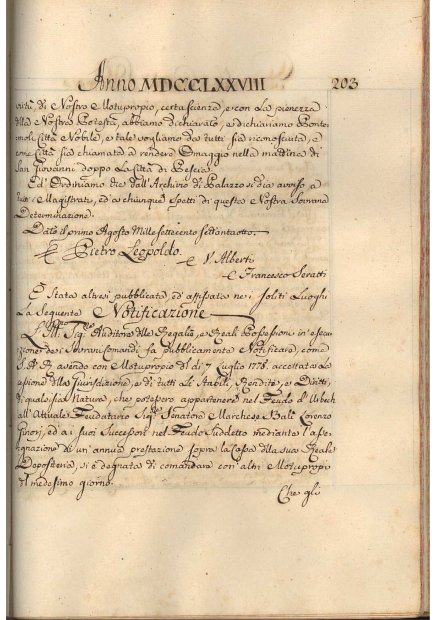 Anno MDCCLXXVIII 203
virtù di Nostro Motuproprio, certa scienza, e con la pienezza
della Nostra Potestà, abbiamo dichiarato, e dichiariamo Pontre=
moli Città Nobile, e tale vogliamo da tutti sia riconosciuta, e
come Città sia chiamata a rendere Omaggio nella mattina di
San Giovanni doppo La Città di Pescia.
Ed Ordiniamo che dall'Archivio di Palazzo se dia avviso a
tutti i Magistrati, ed a chiunque Spetti di questa Nostra Sovrana
Determinazione.
Dato il primo Agosto Mille settecento settantaotto.
Pietro Leopoldo.
V. Alberti
Francesco Seratti
È Stata altresì pubblicata, ed affissata nei soliti Luoghi
La Seguente Notificazione
L'Ill.mo Sig.re Auditore delle Regalie, e Reali Possessioni in esecu
zione dei Sovrani Comandi fa pubblicamente Notificare, come
S. A. R. avendo con Motuproprio del dì 7 Luglio 1778. accettata La
cessione della Jurisdizione, e di tutti Le Stabili, Rendite, e Diritti,
di qualsisia Natura, che potessero appartenere nel Feudo d'Urbech
all'Attuale Feudatario Sig.re Senatore Marchese Balì Lorenzo
Ginori, ed ai suoi Successori nel Feudo Suddetto mediante l'asse=
gnazione di un'annua prestazione sopra la Cassa della sua Reale
Depositeria, si è degnata di comandare con altri Motupropri
del medesimo giorno.
Che gli